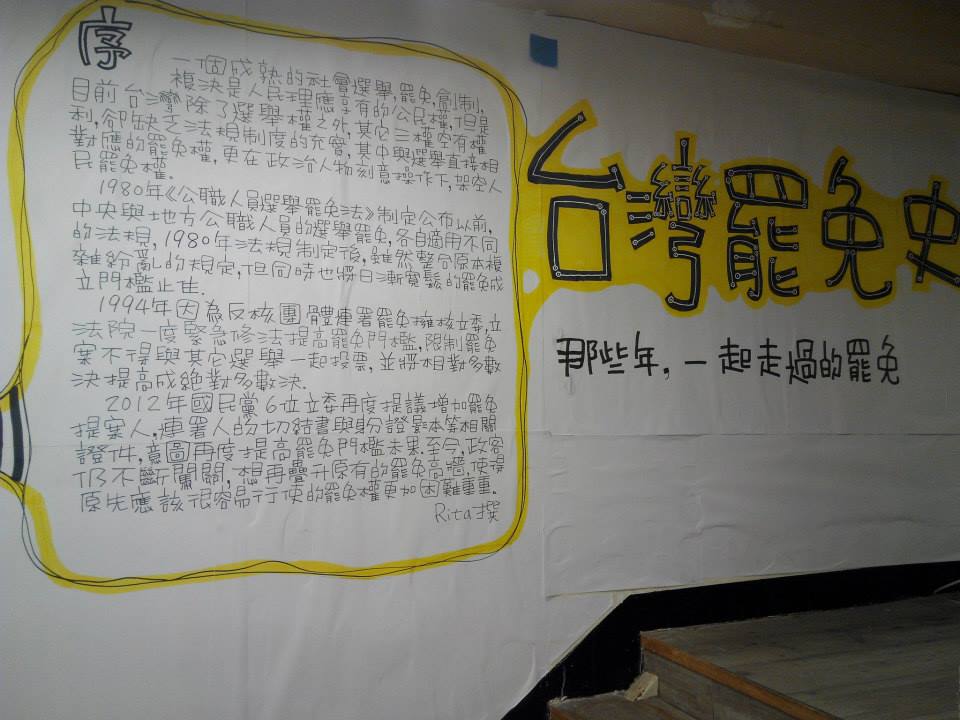 序
一個成熟的社會選舉,罷免,創制,
複決是人民理應享有的公民權,但是
目前台灣除了選舉權之外,其它三權空有權
利,卻缺乏法規制度的充實,其中與選舉直接相
對應的罷免權,更在政治人物刻意操作下,架空人
民罷免權.
1980年《公職人員選舉罷免法》制定公布以前,
中央與地方公職人員的選舉罷免,各自適用不同
的法規,1980年法規制定後,雖然整合原本複
雜紛亂的規定,但同時也將日漸寬鬆的罷免成
立門檻止住.
1994年因為反核團體連署罷免擁核立委,立
法院一度緊急修法提高罷免門檻,限制罷免
案不得與其它選舉一起投票,並將相對多數
決提高成絕對多數決.
2012年國民黨6位立委再度提議增加罷免
提案人,連署人的切結書與身份證影本等相關
證件,意圖再度提高罷免門檻未果.至今,政客
仍不斷闖關,想再疊升原有的罷免高牆,使得
原先應該很容易行使的罷免權更加困難重重.
Rita撰
台灣罷免史
那些年,一起走過的罷免